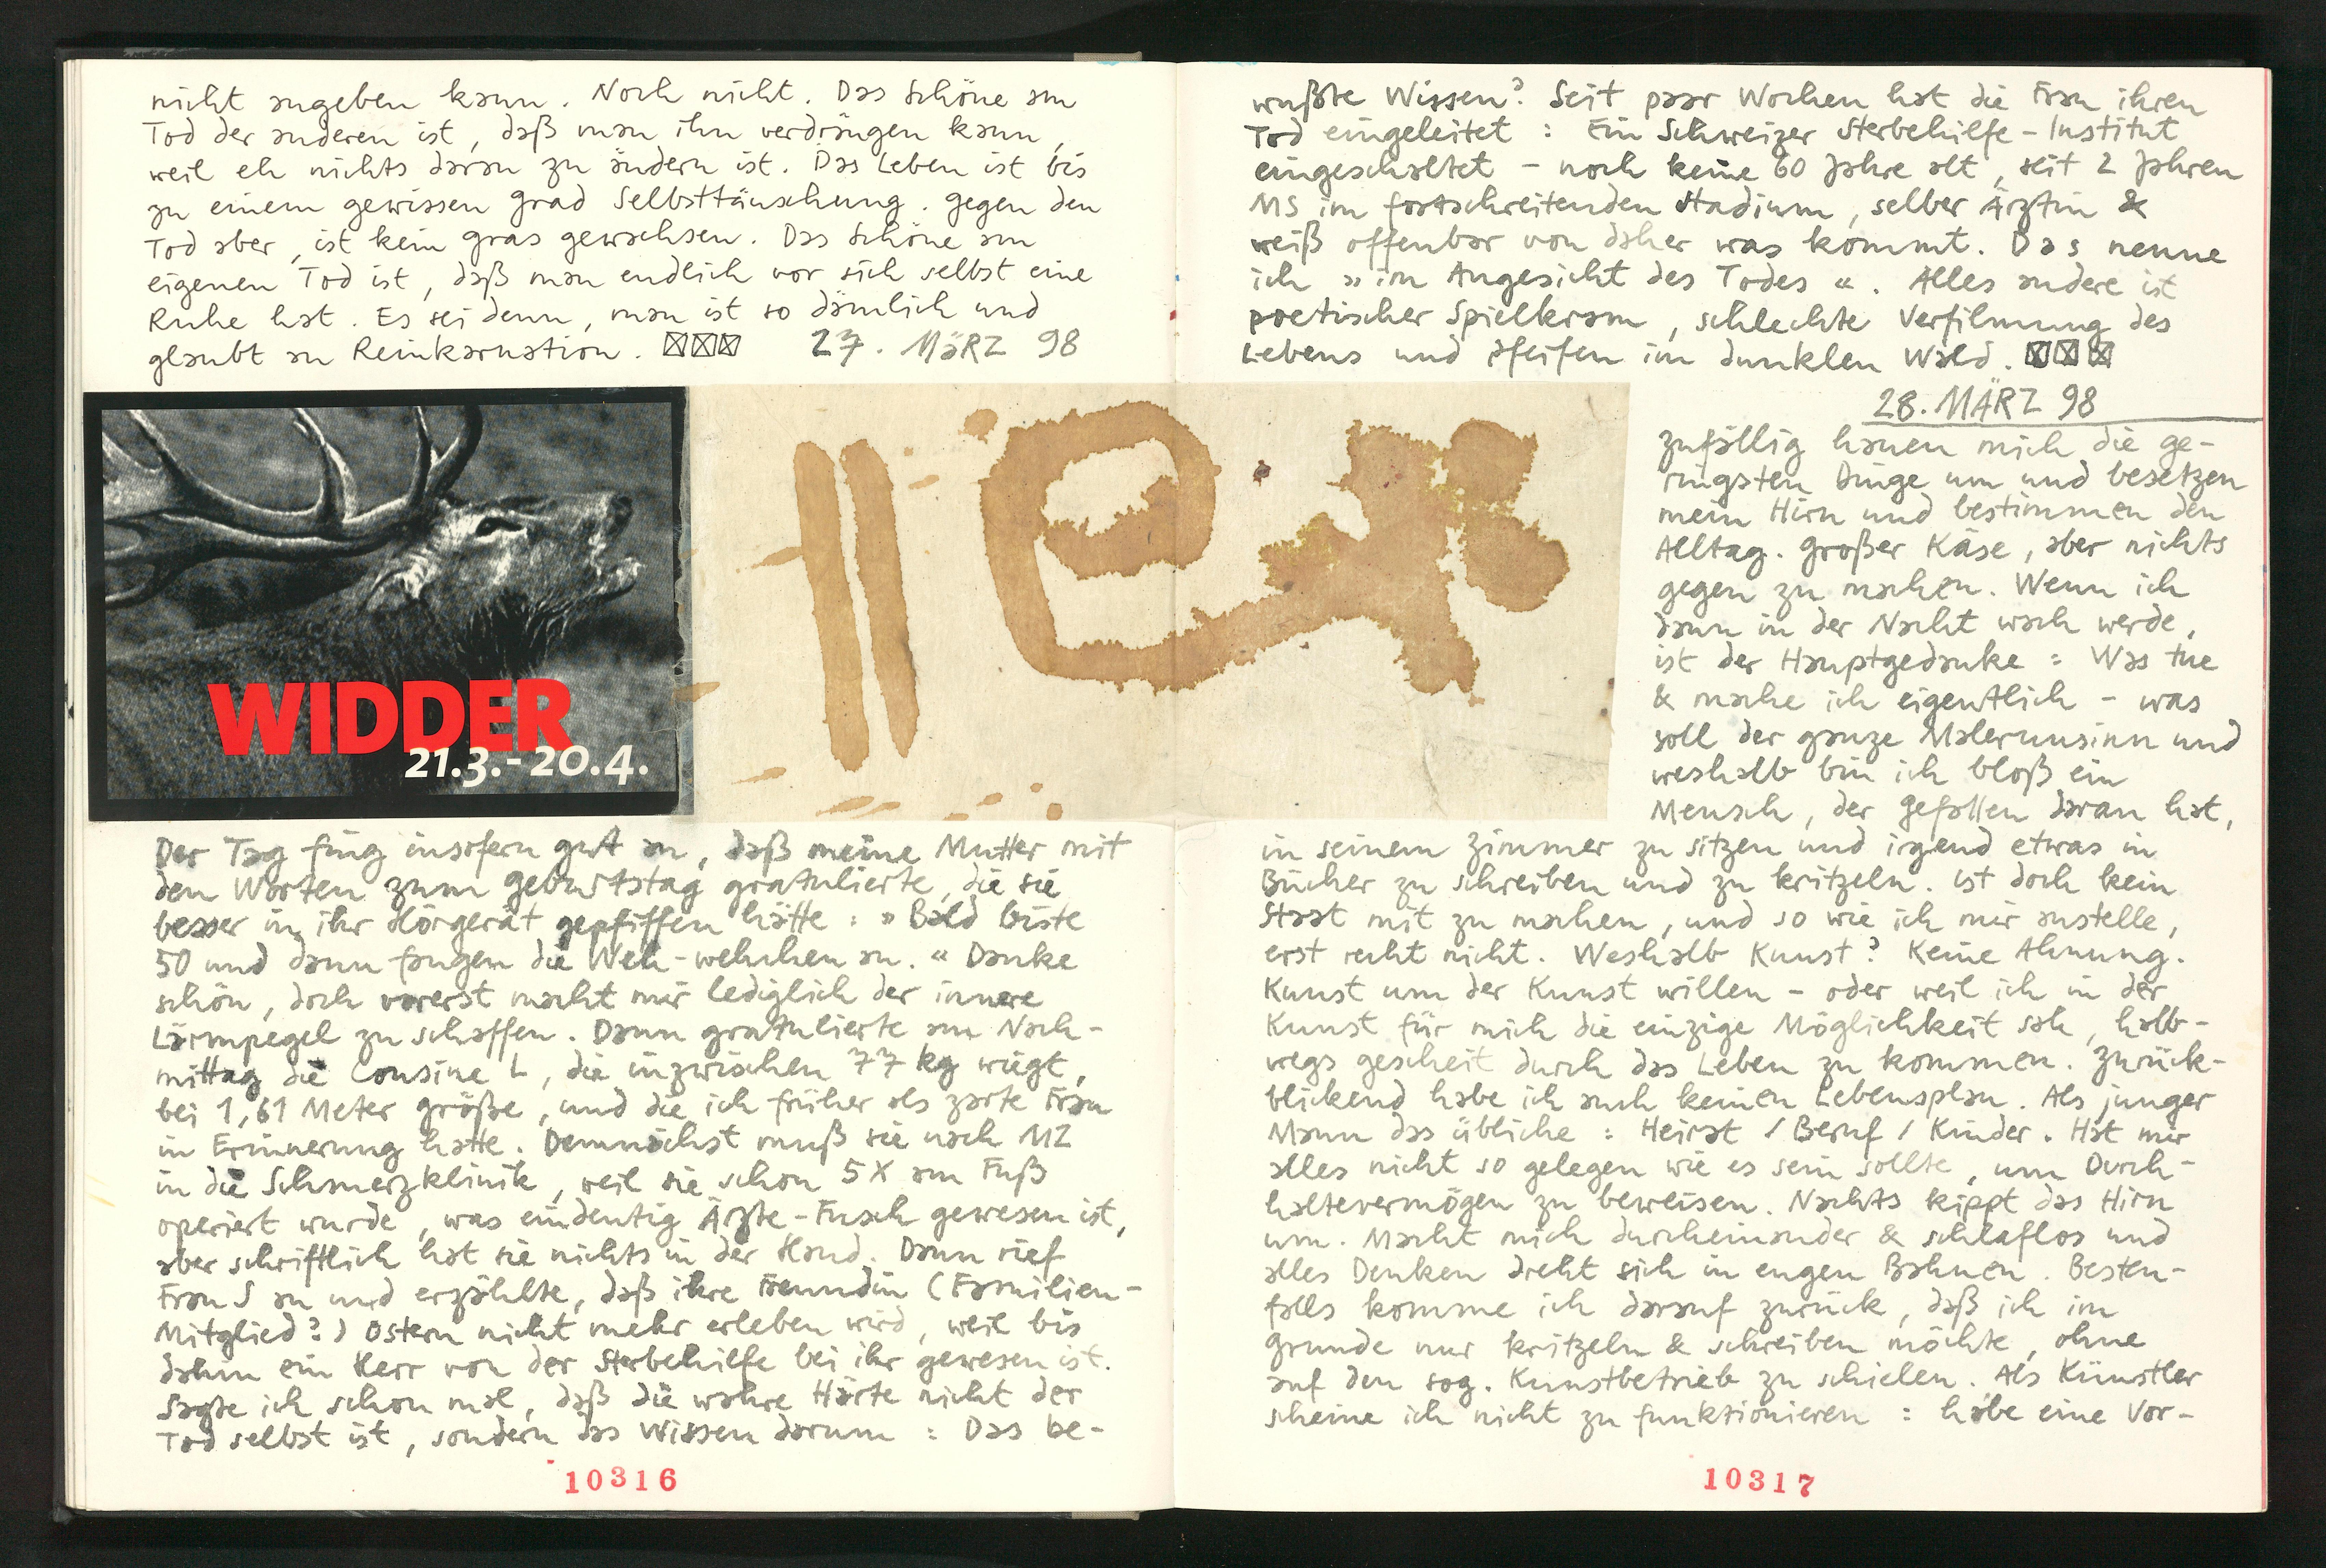 nicht angeben kann. Noch nicht. Das Schöne am
Tod der anderen ist, daß man ihn verdrängen kann,
weil eh nichts daran zu ändern ist. Das Leben ist bis
zu einem gewissen Grad Selbsttäuschung. Gegen den
Tod aber, ist kein Gras gewachsen. Das Schöne am
eigenen Tod ist, daß man endlich vor sich selbst eine
Ruhe hat. Es sei denn, man ist so dämlich und
glaubt an Reinkarnation. ☒☒☒ 27. MÄRZ 98
WIDDER
21.3.-20.4.
Der Tag fing insofern gut an, daß meine Mutter mit
den Worten zum Geburtstag gratulierte, die sie
besser in ihr Hörgerät gepfiffen hätte: »Bald biste
50 und dann fangen die Weh-wehchen an.« Danke
schön, doch vorerst macht mir lediglich der innere
Lärmpegel zu schaffen. Dann gratulierte am Nach-
mittag die Cousine L, die inzwischen 77 kg wiegt,
bei 1,61 Meter Größe, und die ich früher als zarte Frau
in Erinnerung hatte. Demnächst muß sie nach MZ
in die Schmerzklinik, weil sie schon 5X am Fuß
operiert wurde, was eindeutig Ärzte-Fusch gewesen ist,
aber schriftlich hat sie nichts in der Hand. Dann rief
Frau S an und erzählte, daß ihre Freundin (Familien-
Mitglied?) Ostern nicht mehr erleben wird, weil bis
dahin ein Herr von der Sterbehilfe bei ihr gewesen ist.
Sagte ich schon mal, daß die wahre Härte nicht der
Tod selbst ist, sondern das Wissen darum: Das be-
10316
wußte Wissen? Seit paar Wochen hat die Frau ihren
Tod eingeleitet: Ein Schweizer Sterbehilfe-Institut
eingeschaltet - noch keine 60 Jahre alt, seit 2 Jahren
MS im fortschreitenden Stadium, selber Ärztin &
weiß offenbar von daher was kommt. Das nenne
ich »im Angesicht des Todes«. Alles andere ist
poetischer Spielkram, schlechte Verfilmung des
Lebens und Pfeifen im dunklen Wald. ☒☒☒
28. MÄRZ 98
zufällig hauen mich die ge-
ringsten Dinge um und besetzen
mein Hirn und bestimmen den
Alltag. Großer Käse, aber nichts
gegen zu machen. Wenn ich
dann in der Nacht wach werde,
ist der Hauptgedanke: Was tue
& mache ich eigentlich - was
soll der ganze Malerunsinn und
weshalb bin ich bloß ein
Mensch, der Gefallen daran hat,
in seinem Zimmer zu sitzen und irgend etwas in
Bücher zu schreiben und zu kritzeln. Ist doch kein
Staat mit zu machen, und so wie ich mir anstelle,
erst recht nicht. Weshalb Kunst? Keine Ahnung.
Kunst um der Kunst willen - oder weil ich in der
Kunst für mich die einzige Möglichkeit sah, halb-
wegs gescheit durch das Leben zu kommen. Zurück-
blickend habe ich auch keinen Lebensplan. Als junger
Mann das übliche: Heirat / Beruf / Kinder. Hat mir
alles nicht so gelegen wie es sein sollte, um Durch-
haltevermögen zu beweisen. Nachts kippt das Hirn
um. Macht mich durcheinander & schlaflos und
alles Denken dreht sich in engen Bahnen. Besten-
falls komme ich darauf zurück, daß ich im
Grunde nur kritzeln & schreiben möchte, ohne
auf den sog. Kunstbetrieb zu schielen. Als Künstler
scheine ich nicht zu funktionieren: habe eine Vor-
10317